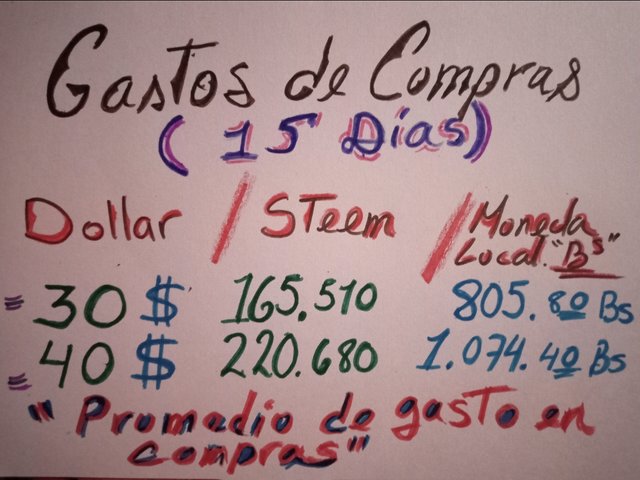 Gastos de Compras
( 15 Días)
Dollar / STeem / Moneda Local. "Bs"
= 30 $ 165.510 805.80 Bs
= 40 $ 220.680 1.074.40 Bs
" Promedio de gasto en
compras"